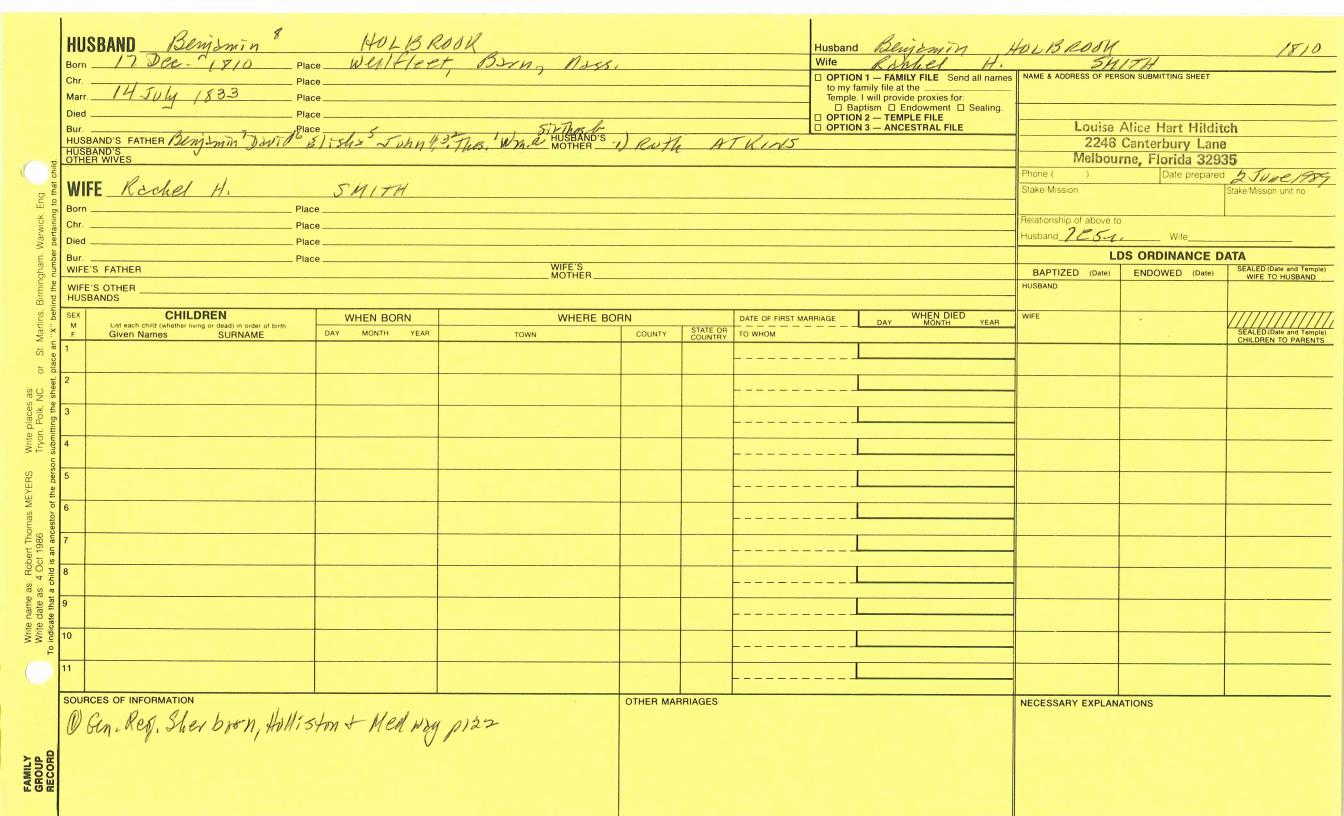 HUSBAND Benjamin 8 HOLBROOK
Born 17 Dec. 1810 Place Wellfleet, Barn, Mass.
Chr. Place
Marr. 14 July 1833 Place
Died Place
Bur. Place
HUSBAND'S FATHER Benjamin 7 David 6 Elisha 5 John 4 Thos. Wm. HUSBAND'S MOTHER 1) Ruth ATKINS
HUSBAND'S OTHER WIVES
Husband Benjamin HOLBROOK 1810
Wife Rachel H. SMITH
☐ OPTION 1 — FAMILY FILE Send all names
to my family file at the
Temple. I will provide proxies for:
☐ Baptism ☐ Endowment ☐ Sealing.
☐ OPTION 2 — TEMPLE FILE
☐ OPTION 3 — ANCESTRAL FILE
NAME & ADDRESS OF PERSON SUBMITTING SHEET
Louise Alice Hart Hilditch
2246 Canterbury Lane
Melbourne, Florida 32935
Phone ( ) Date prepared 2 June 1989
Stake Mission Stake Mission unit no
Relationship of above to
Husband Wife
WIFE Rachel H. SMITH
Born Place
Chr. Place
Died Place
Bur. Place
WIFE'S FATHER WIFE'S MOTHER
WIFE'S OTHER HUSBANDS
LDS ORDINANCE DATA
BAPTIZED (Date) ENDOWED (Date) SEALED (Date and Temple) WIFE TO HUSBAND
HUSBAND
WIFE
SEALED (Date and Temple) CHILDREN TO PARENTS
SEX M F
CHILDREN
List each child (whether living or dead) in order of birth
Given Names SURNAME
WHEN BORN
DAY MONTH YEAR
WHERE BORN
TOWN COUNTY STATE OR COUNTRY
DATE OF FIRST MARRIAGE
TO WHOM
WHEN DIED
DAY MONTH YEAR
1
2
3
4
5
6
7
8
9
10
11
SOURCES OF INFORMATION
① Gen. Reg. Sherborn, Holliston & Medway p122
OTHER MARRIAGES
NECESSARY EXPLANATIONS
Write name as Robert Thomas MEYERS Write places as
Write date as: 4 Oct 1986 Tryon, Polk, NC or St Martins, Birmingham, Warwick, Eng
To indicate that a child is an ancestor of the person submitting the sheet, place an "X" behind the number pertaining to that child
FAMILY
GROUP
RECORD